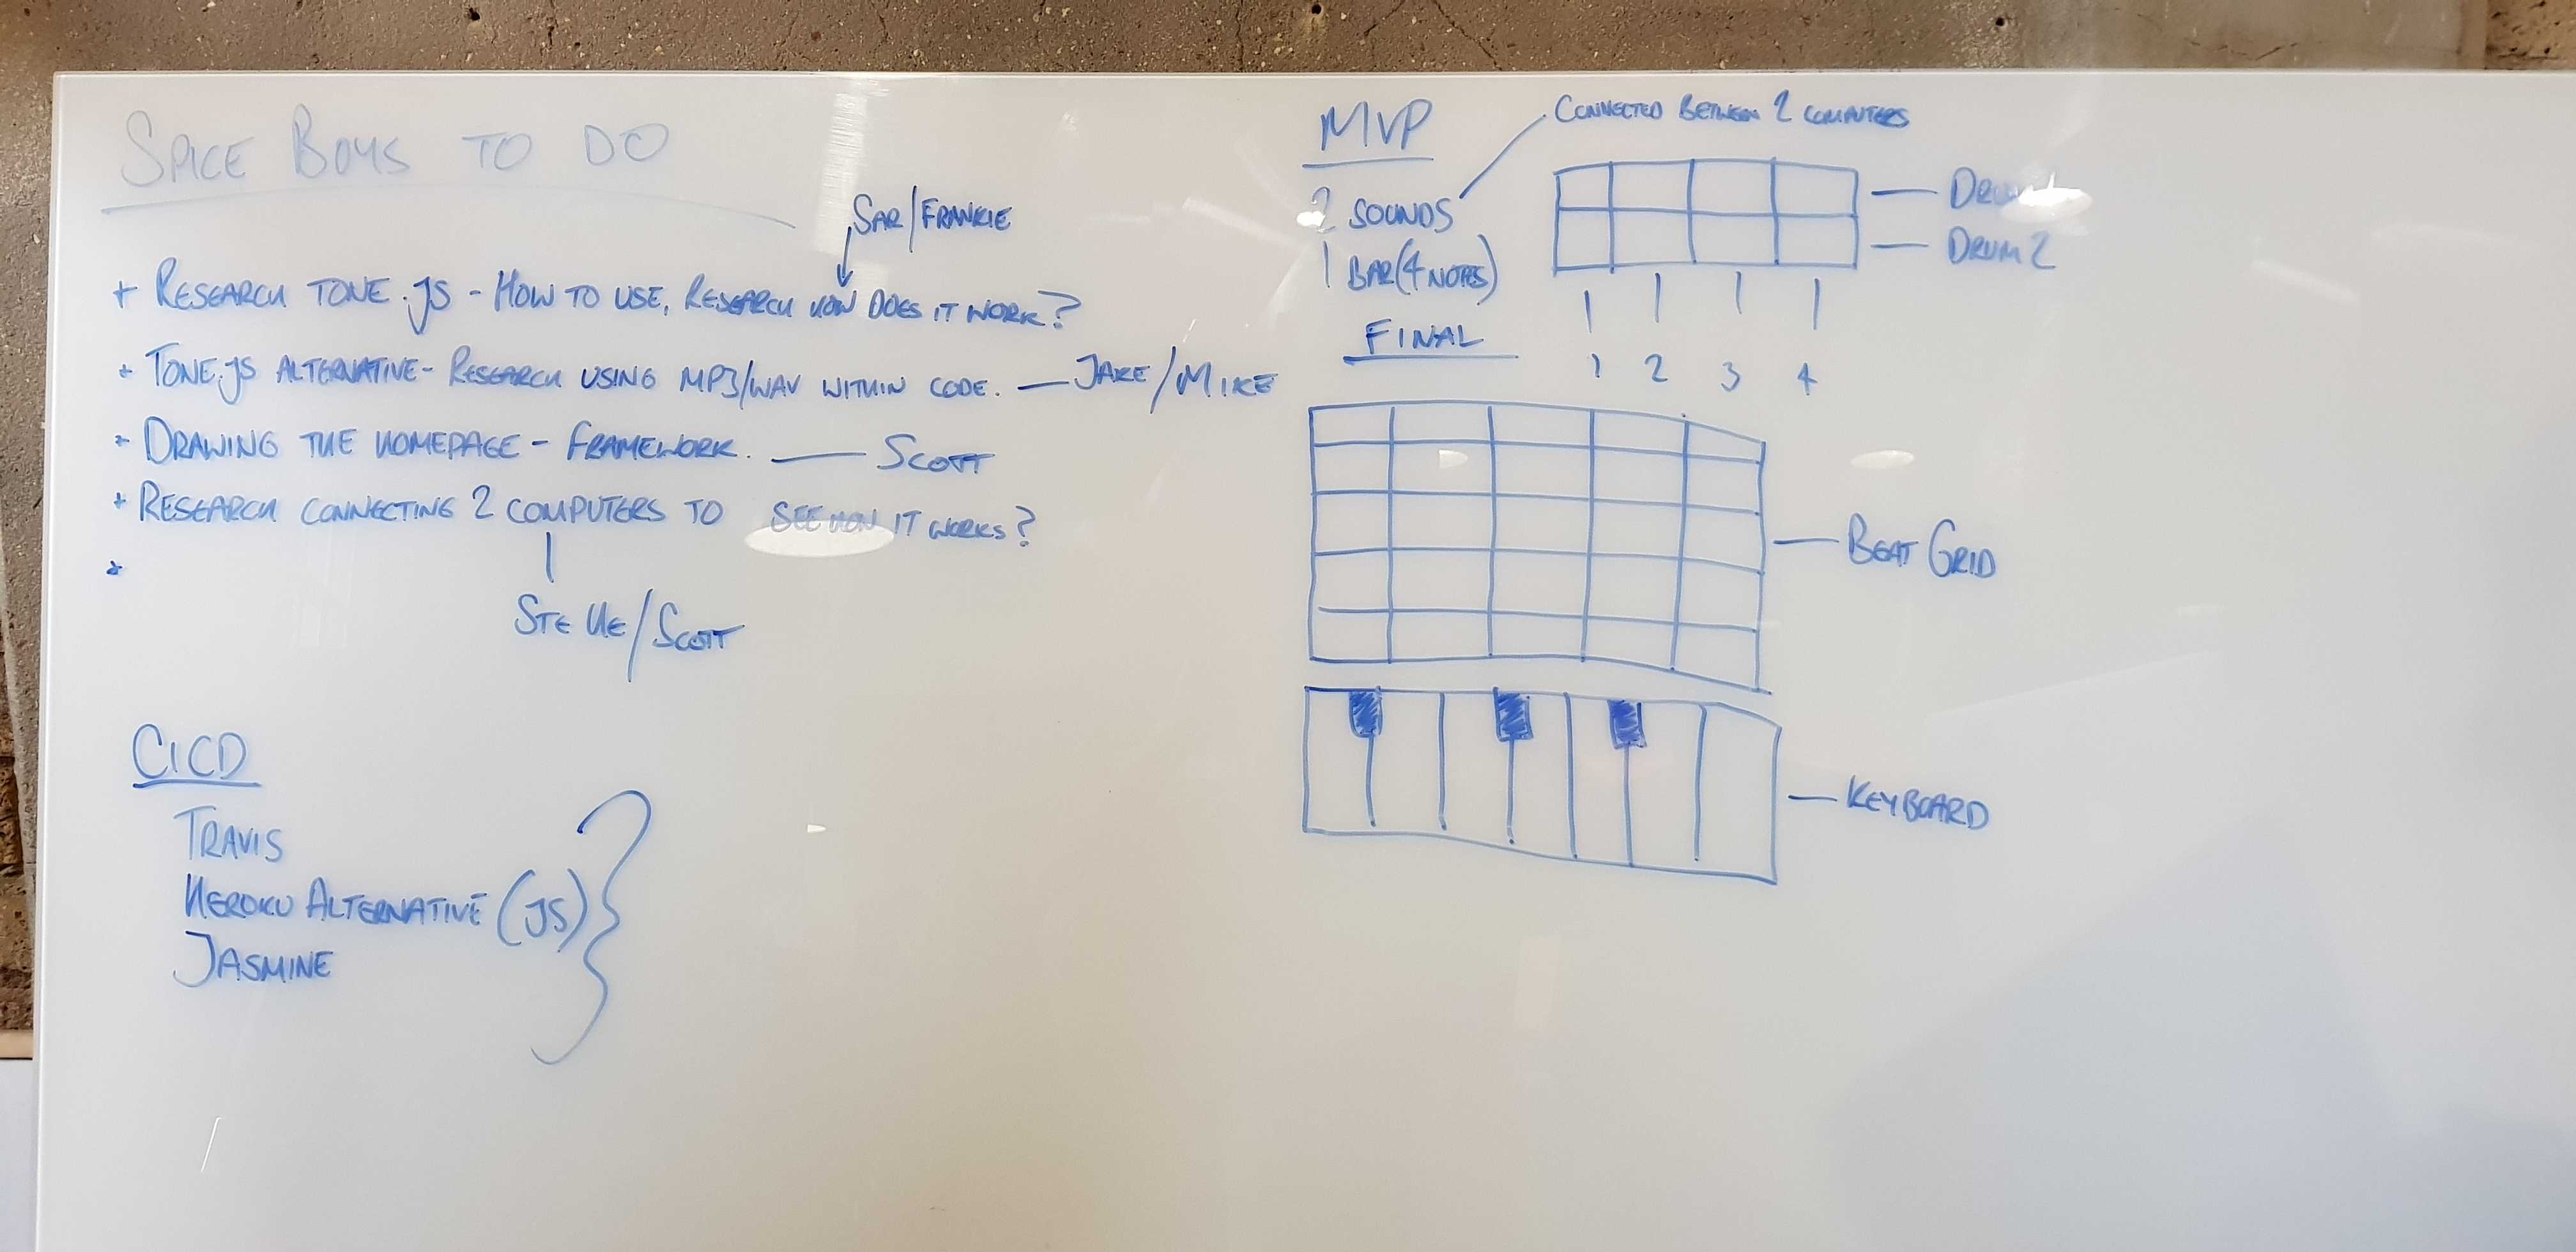 SPICE BOYS TO DO
SAR/FRANKIE
+ RESEARCH TONE.JS - HOW TO USE, RESEARCH HOW DOES IT WORK?
* TONE.JS ALTERNATIVE - RESEARCH USING MP3/WAV WITHIN CODE. — JAKE/MIKE
* DRAWING THE HOMEPAGE - FRAMEWORK. — SCOTT
* RESEARCH CONNECTING 2 COMPUTERS TO SEE HOW IT WORKS?
*
STEVE/SCOTT
CICD
TRAVIS
HEROKU ALTERNATIVE (JS)
JASMINE
MVP
CONNECTED BETWEEN 2 COMPUTERS
2 SOUNDS
1 BAR (4 NOTES)
DRUM 2
1 2 3 4
FINAL
BEAT GRID
KEYBOARD